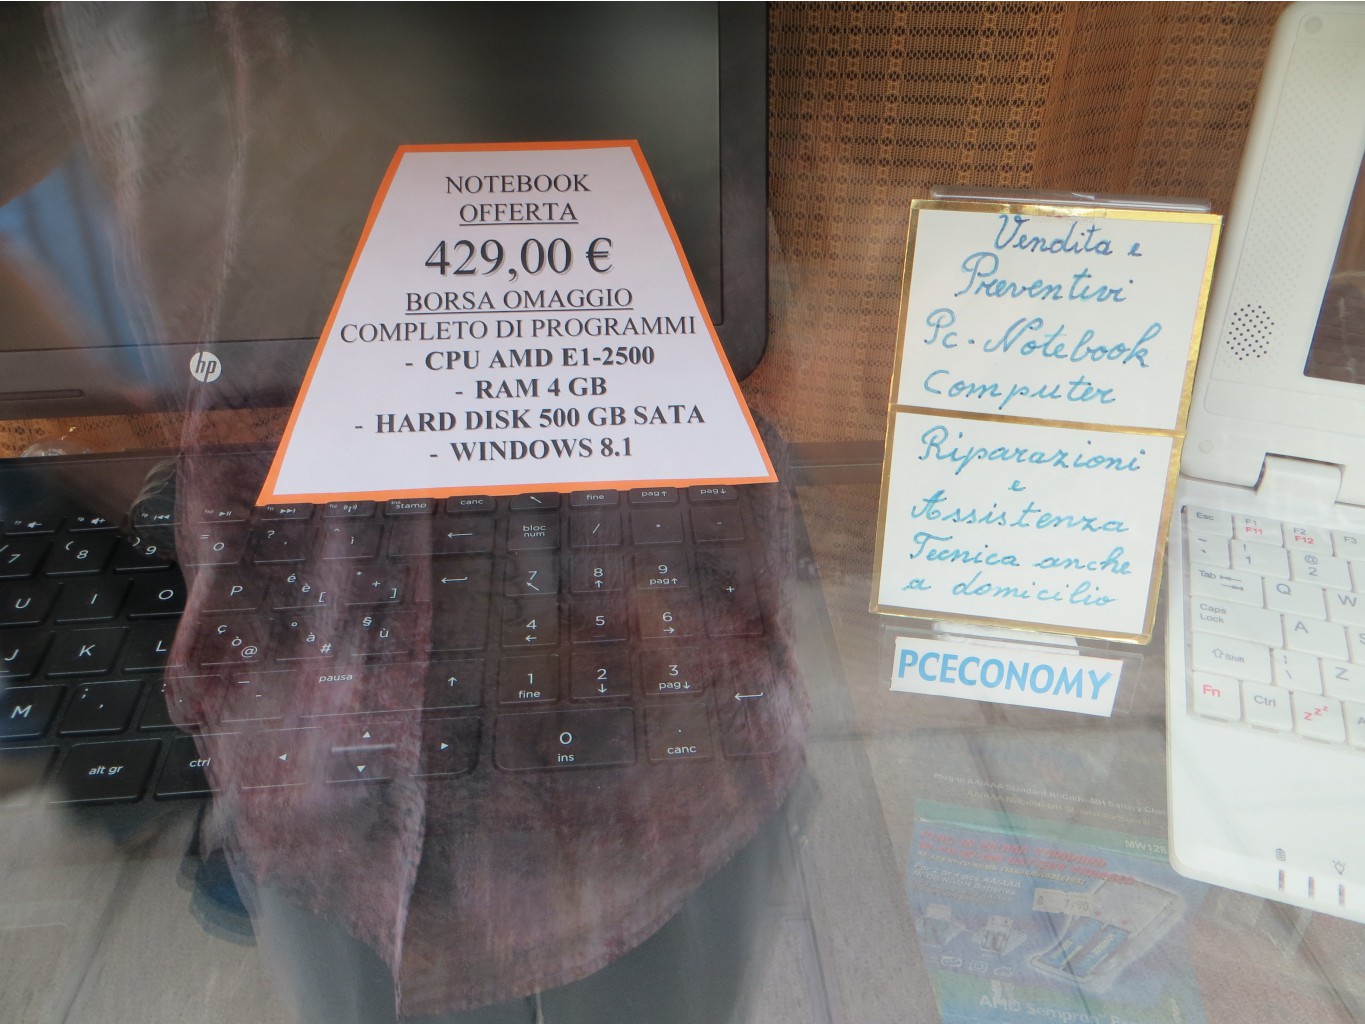 NOTEBOOK
OFFERTA
429,00 €
BORSA OMAGGIO
COMPLETO DI PROGRAMMI
- CPU AMD E1-2500
- RAM 4 GB
- HARD DISK 500 GB SATA
- WINDOWS 8.1
hp
Vendita e
Preventivi
Pc - Notebook
Computer
Riparazioni
e
Assistenza
Tecnica anche
a domicilio
PCECONOMY
stamp
canc
fine
pag↑
pag↓
7
8
9
=
0
?
'
^
ì
←
bloc
num
/
*
-
U
I
O
P
é
è
[
*
+
]
7
8
↑
9
pag↑
+
J
K
L
ç
ò
@
°
à
#
§
ù
4
←
5
6
→
M
;
,
:
.
_
-
pausa
↑
1
fine
2
↓
3
pag↓
alt gr
ctrl
0
ins
.
canc
Esc
F1
F11
F2
F12
F3
1
@
2
Tab
Q
W
Caps
Lock
A
S
Shift
Z
Fn
Ctrl
zzz
MW128
AMD Sempron